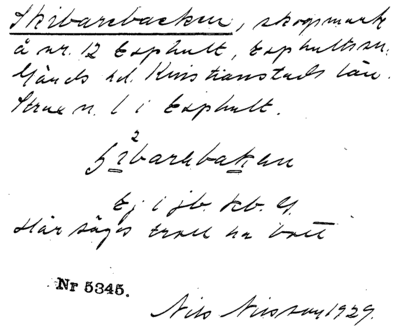 Skibarebacken, skogsmark
å nr. 12 Esphult, Esphults sn.
Gärds hd. Kristianstads län.
n. 1 i Esphult.
barabakan
Ej i jb. kb. G.
Här säges troll ha bott
Nr 5345.
Nils Nilsson 1929.